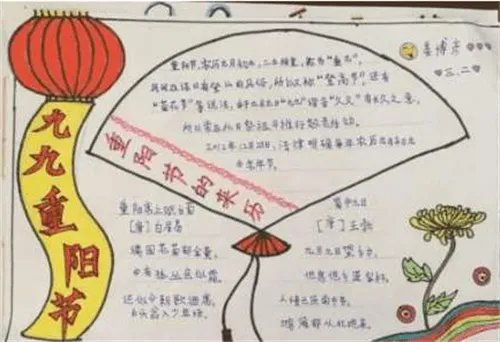 九九重阳节
重阳节,农历九月初九,二九相重,称为"重九"。
民间在该日有登高的风俗,所以又称"登高节",还有
"菊花节"等说法,由于九月初九"九九"谐音"久久"有长久之意,
所以常在此日祭祖与推行敬老活动。
2012年12月28日,法律明确每年农历九月初九
为老年节。
重阳节的来历
三.二
重阳席上赋白菊
[唐]白居易
满园花菊郁金黄,
中有孤丛色似霜。
还似今朝歌酒席,
白头翁入少年场。
蜀中九日
[唐]王勃
九月九日望乡台,
他席他乡送客杯。
人情已厌南中苦,
鸿雁那从北地来。